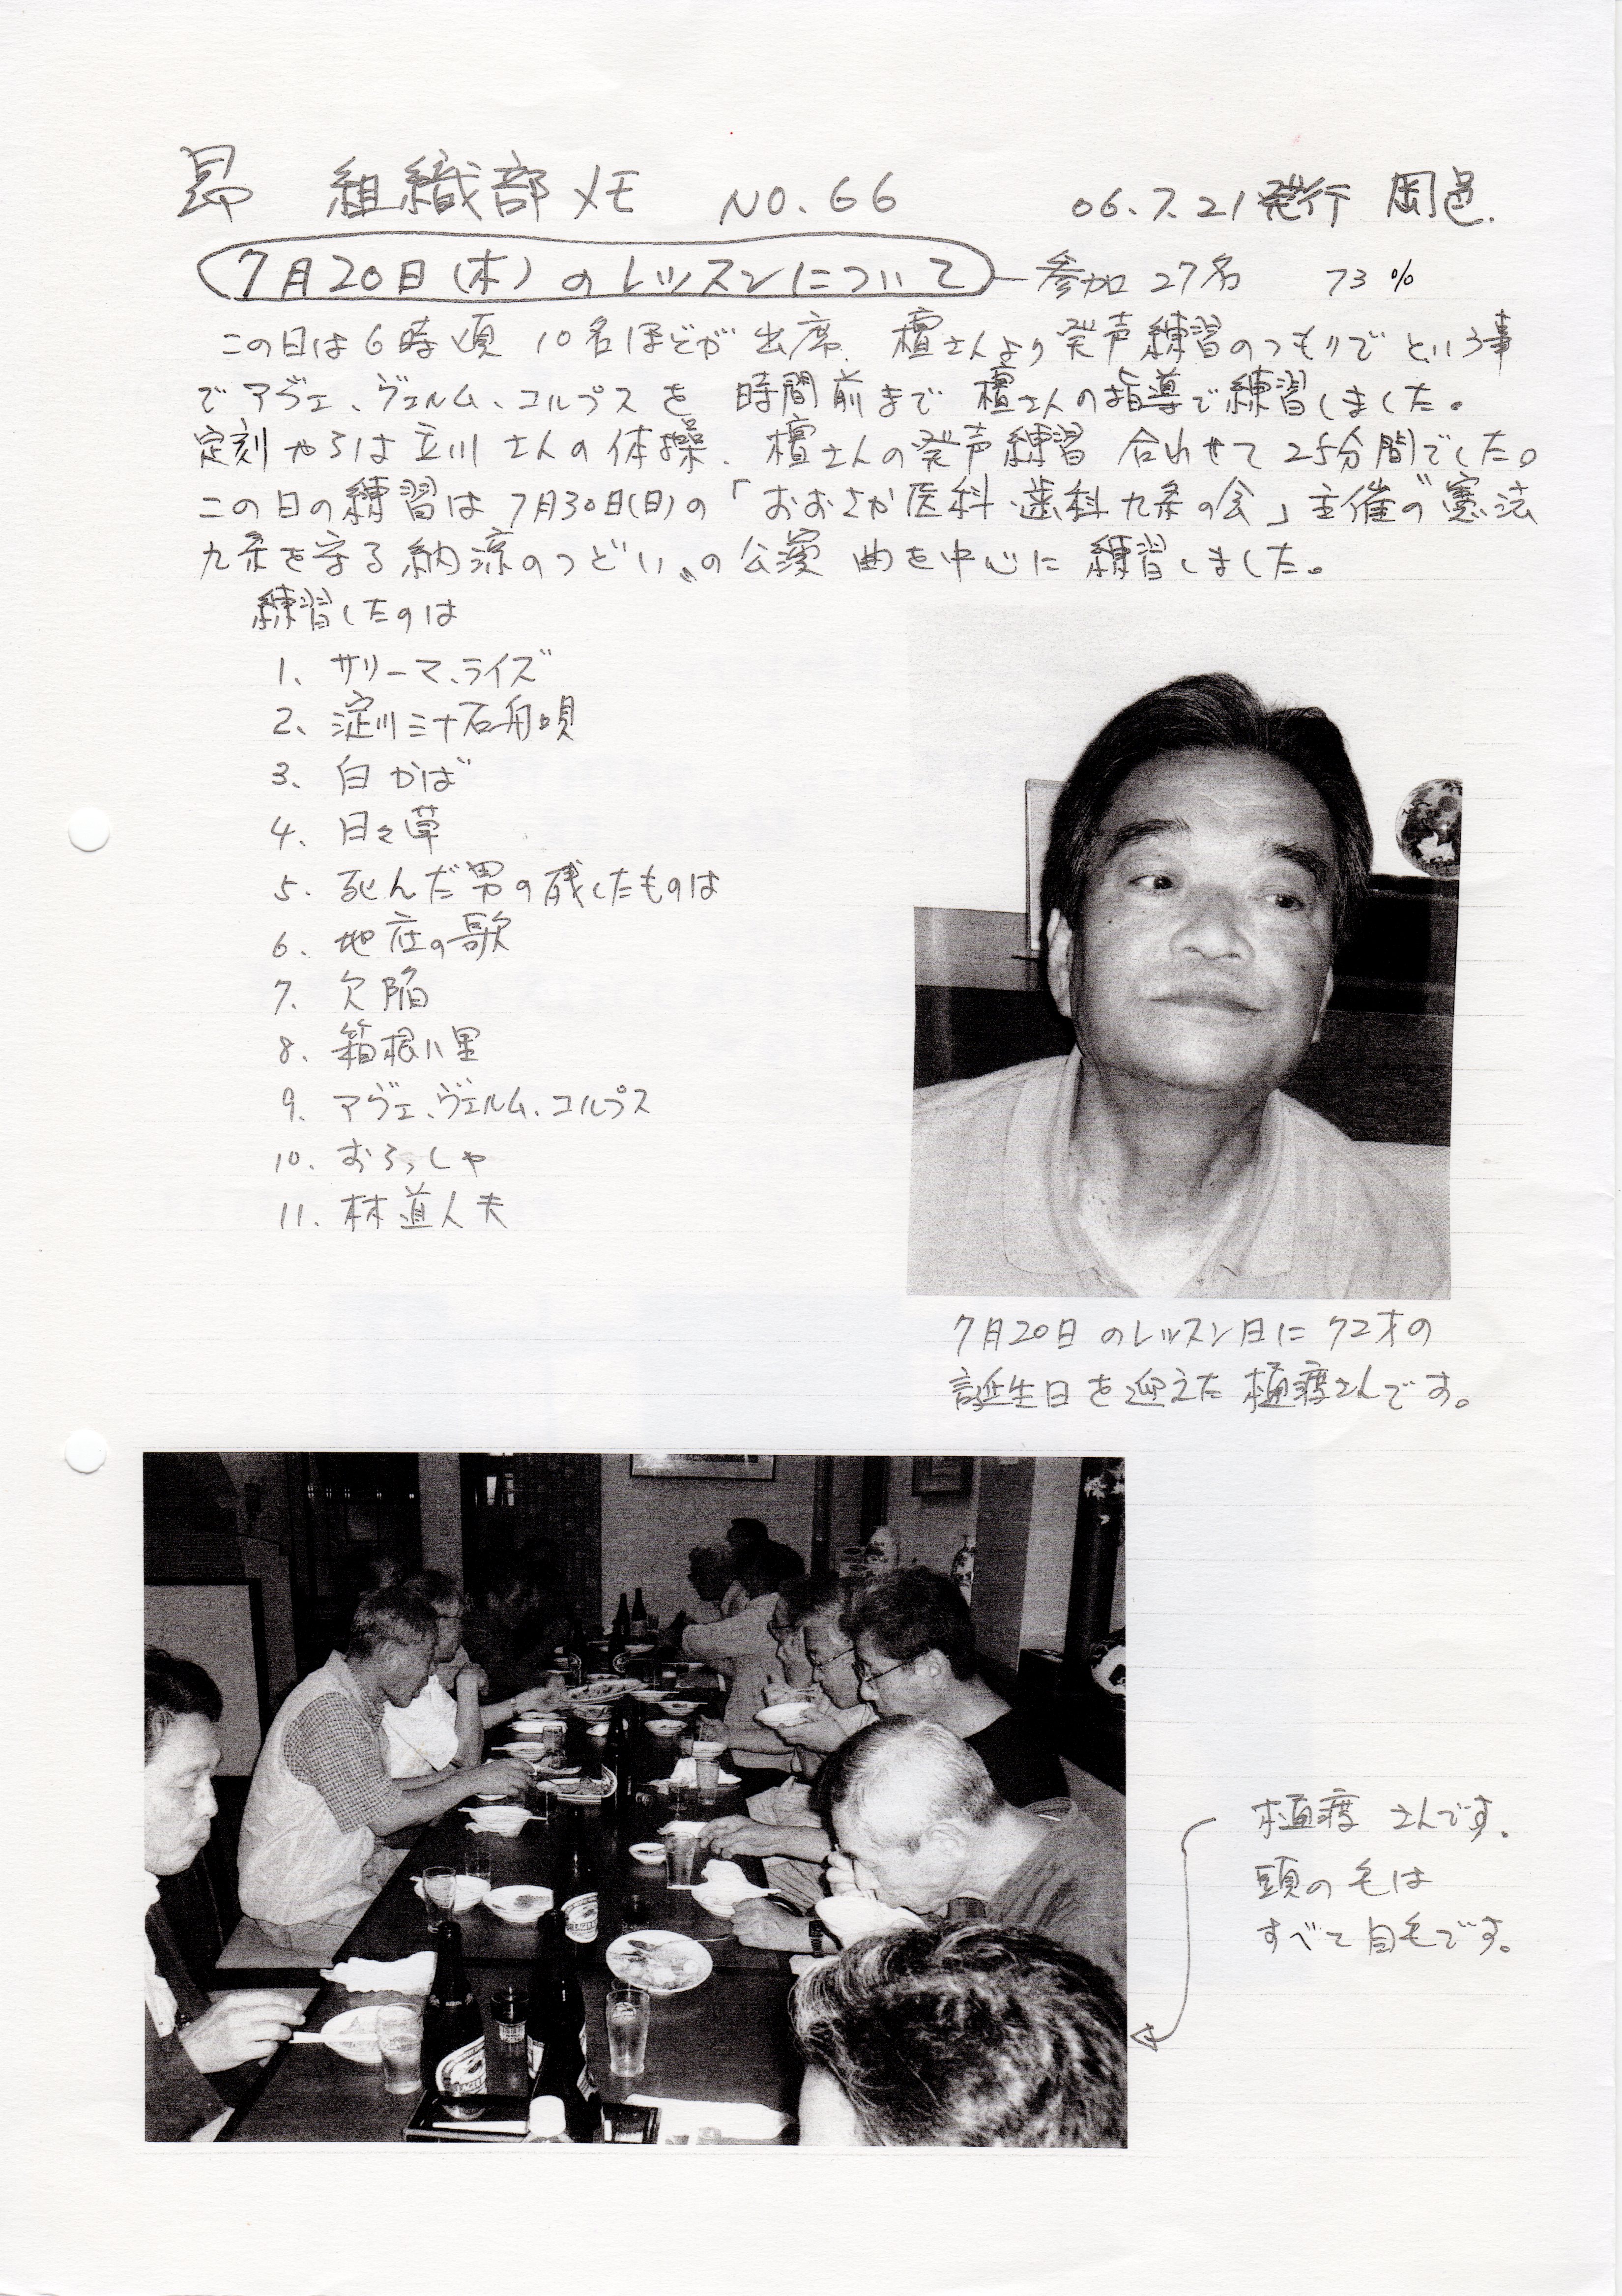 昴 組織部メモ NO.66 06.7.21発行 岡邑.
7月20日(木)のレッスンについて 参加 27名 73%
この日は6時頃 10名ほどが出席. 檀さんより発声練習のつもりでという事
でアヴェ、ヴェルム、コルプスを 時間前まで 檀さんの指導で練習しました。
定刻からは立川さんの体操、檀さんの発声練習 合わせて25分間でした。
この日の練習は7月30日(日)の「おおさか医科・歯科九条の会」主催の〝憲法
九条を守る納涼のつどい〟の公演曲を中心に練習しました。
練習したのは
1、サリーマ、ライズ
2、淀川三十石舟唄
3、白かば
4、日々草
5、死んだ男の残したものは
6、地底の歌
7、欠陥
8、箱根八里
9、アヴェ、ヴェルム、コルプス
10、おろっしゃ
11、林道人夫
7月20日のレッスン日に72才の
誕生日を迎えた植渡さんです。
植渡さんです。
頭の毛は
すべて自毛です。